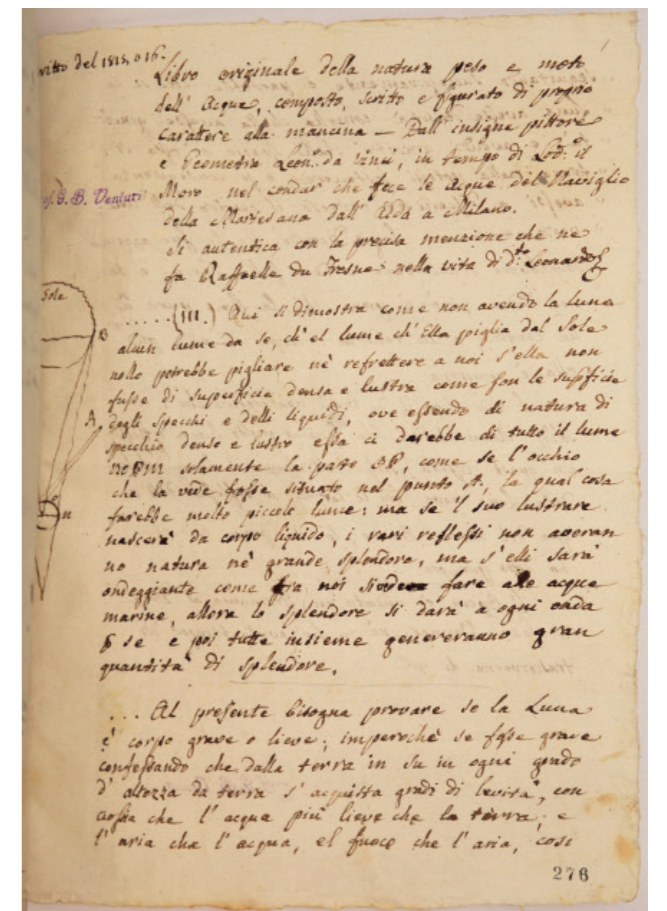 del 1815, o 16.
Libro originale della natura peso e moto
dell' Acqua, composto, scritto e figurato di proprio
carattere alla mancina — Dall' insigne pittore
e Geometra Leon.º da Vinci, in tempo di Lod.º il
Moro nel condur che fece le Acque del Naviglio
della Martesana dall' Adda a Milano.
Si autentica con la precisa menzione che ne
fa Raffaelle du Fresne nella vita di d.to Leonardo
G. B. Venturi
Sole
.....(III.) Qui si dimostra come non avendo la luna
alcun lume da se, ch'el lume ch' Ella piglia dal Sole
nollo potrebbe pigliare nè refrettere a noi s'ella non
fusse di superficie densa e lustra come son le supficie
degli specchi e delli liquidi, ove essendo di natura di
specchio denso e lustro essa ci darebbe di tutto il lume
solamente la parte OP, come se l'occhio
che la vide fosse situato nel punto A, la qual cosa
farebbe molto piccolo lume: ma se 'l suo lustrare
nascerà da corpo liquido, i vari reflessi non averan
no natura nè grande splendore, ma s'elli sarà
ondeggiante come fra noi fare alle acque
marine, allora lo splendore si darà a ogni onda
se e poi tutte insieme genereranno gran
quantità di splendore.
B
A
n
... Al presente bisogna provare se la Luna
è corpo grave o lieve; imperochè se fosse grave
confessando che dalla terra in su in ogni grado
d' altezza da terra s' acquista gradi di levità, con
ciossia che l' acqua più lieve che la terra; e
l' aria cha l' acqua, el fuoco che l' aria, così
276